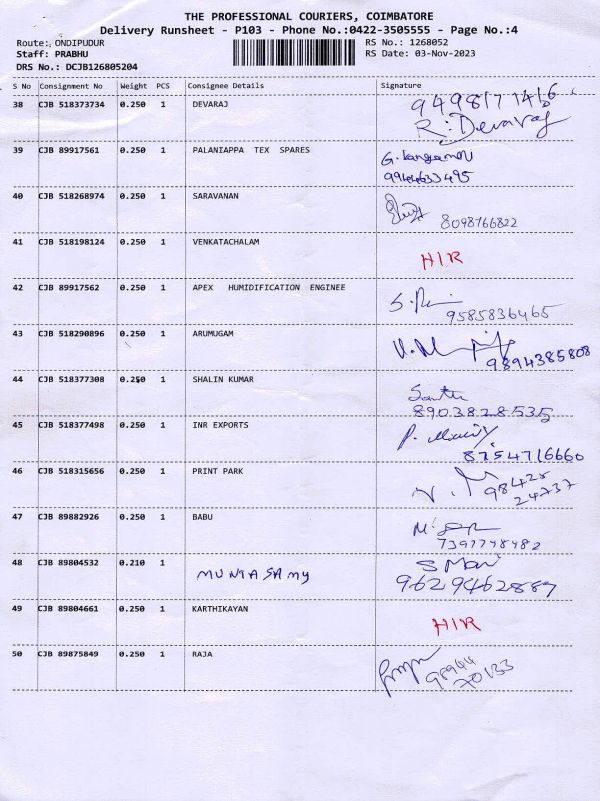 THE PROFESSIONAL COURIERS, COIMBATORE
Delivery Runsheet - P103 - Phone No.:0422-3505555 - Page No.:4
Route: ONDIPUDUR RS No.: 1268052
Staff: PRABHU RS Date: 03-Nov-2023
DRS No.: DCJB126805204
S No Consignment No Weight PCS Consignee Details Signature
38 CJB 518373734 0.250 1 DEVARAJ
R. Devaraj
39 CJB 89917561 0.250 1 PALANIAPPA TEX SPARES
40 CJB 518268974 0.250 1 SARAVANAN
8098766822
41 CJB 518198124 0.250 1 VENKATACHALAM
HIR
42 CJB 89917562 0.250 1 APEX HUMIDIFICATION ENGINEE
9585836465
43 CJB 518290896 0.250 1 ARUMUGAM
9894385808
44 CJB 518377308 0.250 1 SHALIN KUMAR
8903828535
45 CJB 518377498 0.250 1 INR EXPORTS
8754716660
46 CJB 518315656 0.250 1 PRINT PARK
98428
24737
47 CJB 89882926 0.250 1 BABU
48 CJB 89804532 0.210 1 MUNIASAMY S Mari
9629462887
49 CJB 89804661 0.250 1 KARTHIKAYAN
HIR
50 CJB 89875849 0.250 1 RAJA
98944
70133